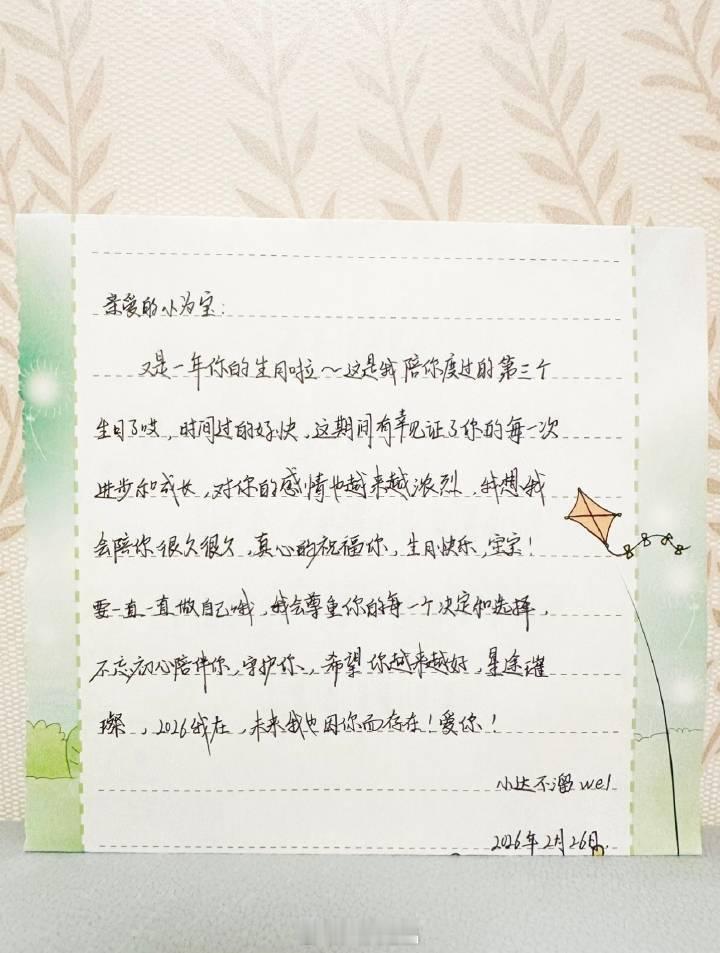 亲爱的小为宝：
又是一年你的生日啦～这是我陪你度过的第三个
生日了哎，时间过的好快，这期间有幸见证了你的每一次
进步和成长，对你的感情也越来越浓烈，我想我
会陪你很久很久，真心的祝福你，生日快乐，宝宝！
要一直一直做自己哦，我会尊重你的每一个决定和选择，
不忘初心陪伴你，守护你，希望你越来越好，星途璀
璨，2026我在，未来我也因你而存在！爱你！
小达不溜wel
2026年2月26日.